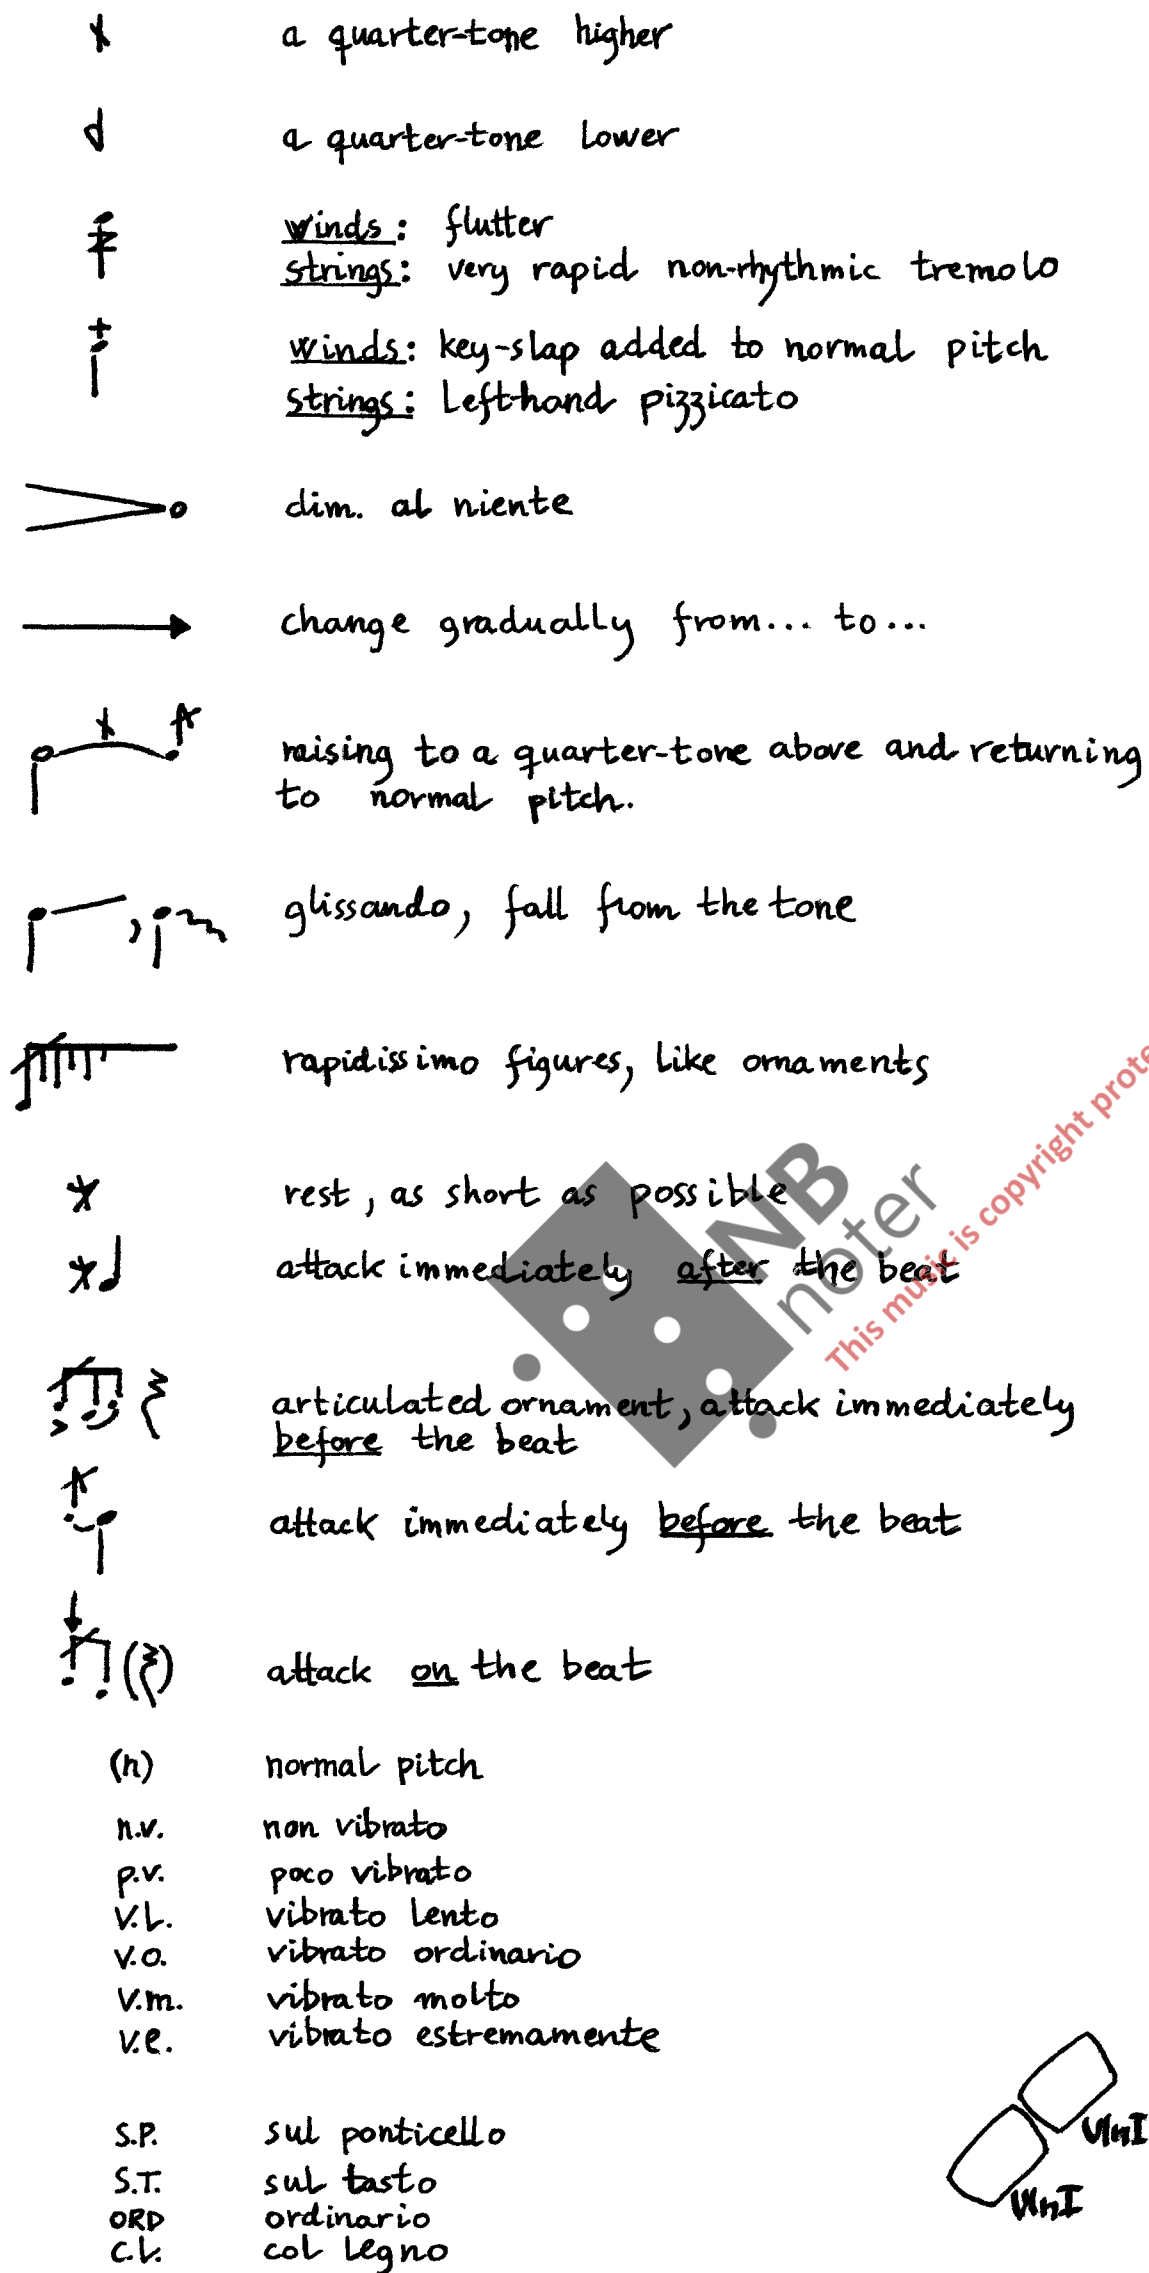 a quarter-tone higher
a quarter-tone lower
winds: flutter
strings: very rapid non-rhythmic tremolo
winds: key-slap added to normal pitch
strings: left-hand pizzicato
dim. al niente
change gradually from... to...
raising to a quarter-tone above and returning
to normal pitch.
glissando, fall from the tone
rapidissimo figures, like ornaments
rest, as short as possible
attack immediately after the beat
articulated ornament, attack immediately
before the beat
attack immediately before the beat
attack on the beat
(n) normal pitch
n.v. non vibrato
p.v. poco vibrato
v.l. vibrato lento
v.o. vibrato ordinario
v.m. vibrato molto
v.e. vibrato estremamente
S.P. sul ponticello
S.T. sul tasto
ORD ordinario
c.l. col legno
VlnI
VlnI
NB
noter
This music is copyright prote